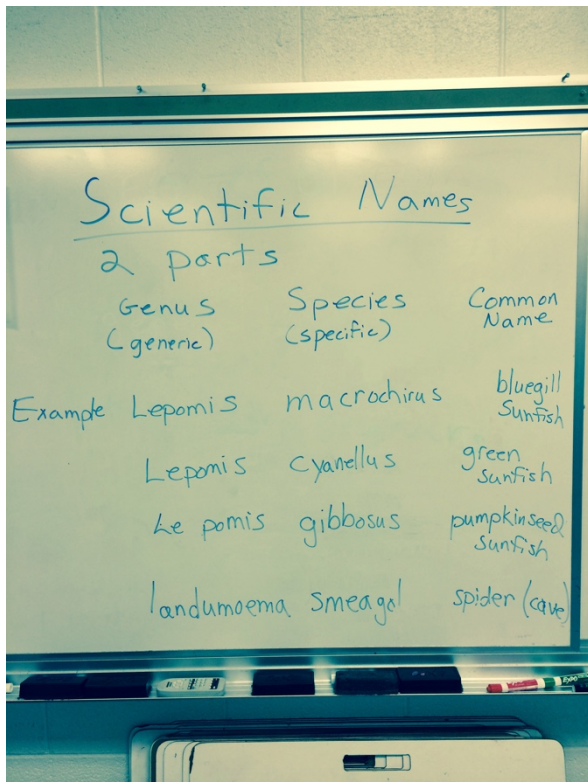 Scientific Names
2 parts
Genus Species Common
(generic) (specific) Name
Example Lepomis macrochirus bluegill
Sunfish
Lepomis cyanellus green
Sunfish
Le pomis gibbosus pumpkinseed
Sunfish
landumoema smeagol spider (cave)